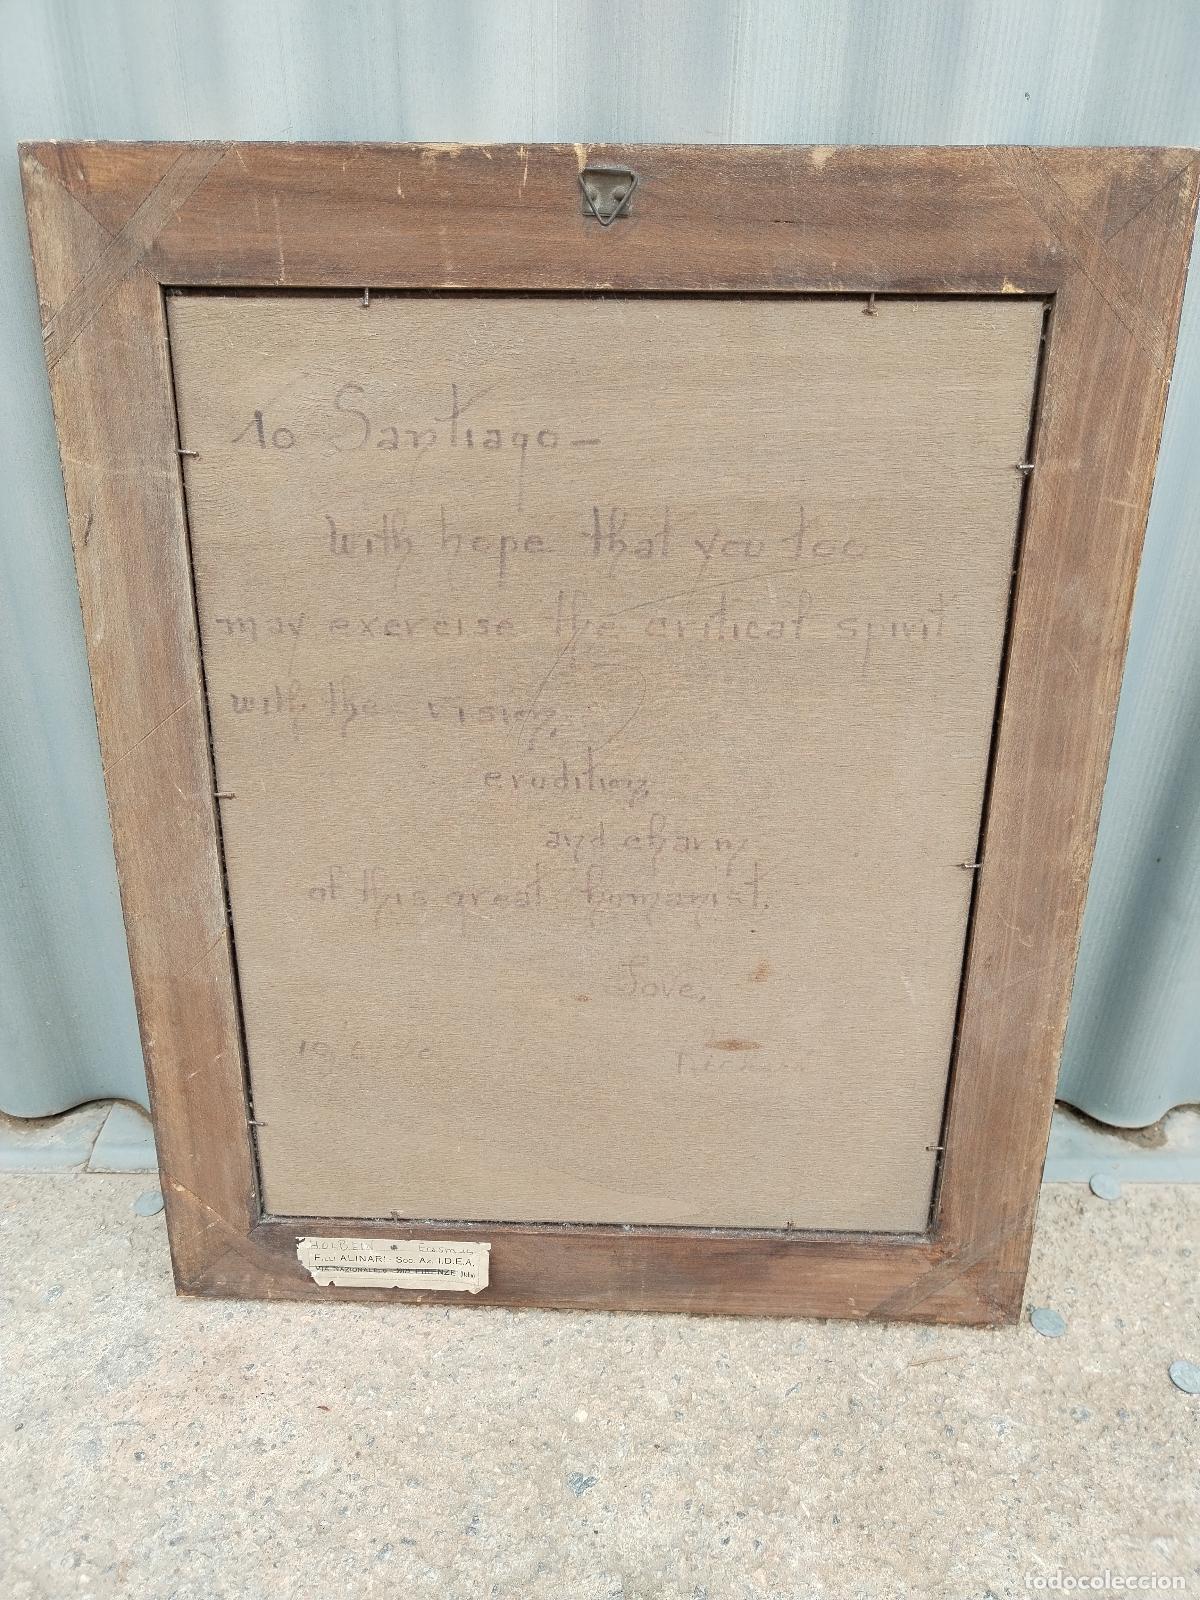 To Santiago—
With hope that you too
may exercise the critical spirit
with the vision,
erudition,
and charm
of this great humanist.
Love,
Richard
HOLBEIN Erasmus
F.LLI ALINARI - Soc. An. I.D.E.A.
VIA NAZIONALE, 6 FIRENZE
todocoleccion